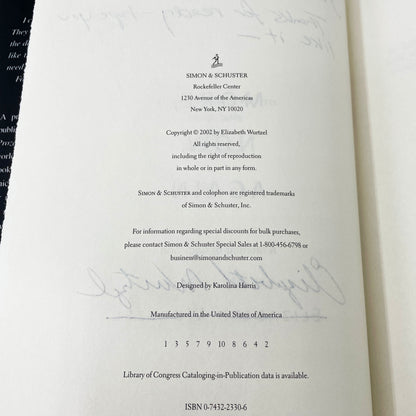 I c
They
the d
like t
need
A p
publi
Pro
work
book
nic
Thanks for reading – hope you
like it –
SIMON & SCHUSTER
Rockefeller Center
1230 Avenue of the Americas
New York, NY 10020
Copyright © 2002 by Elizabeth Wurtzel
All rights reserved,
including the right of reproduction
in whole or in part in any form.
SIMON & SCHUSTER and colophon are registered trademarks
of Simon & Schuster, Inc.
For information regarding special discounts for bulk purchases,
please contact Simon & Schuster Special Sales at 1-800-456-6798 or
business@simonandschuster.com
Elizabeth Wurtzel
Designed by Karolina Harris
Manufactured in the United States of America
1 3 5 7 9 10 8 6 4 2
Library of Congress Cataloging-in-Publication data is available.
ISBN 0-7432-2330-6